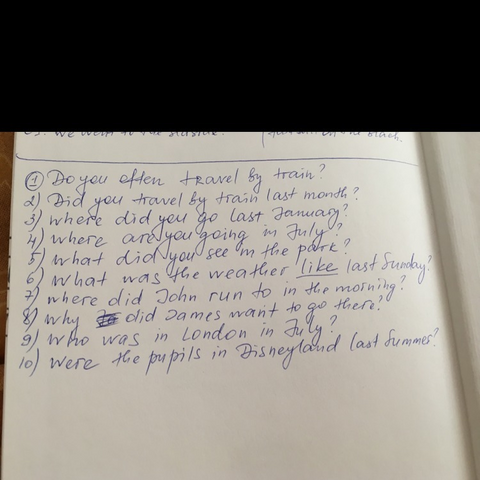 we went to the seaside.
1) Do you often travel by train?
2) Did you travel by train last month?
3) where did you go last January?
4) where are you going in July?
5) what did you see in the park?
6) what was the weather like last Sunday?
7) where did John run to in the morning?
8) why did James want to go there?
9) who was in London in July?
10) were the pupils in Disneyland last Summer?